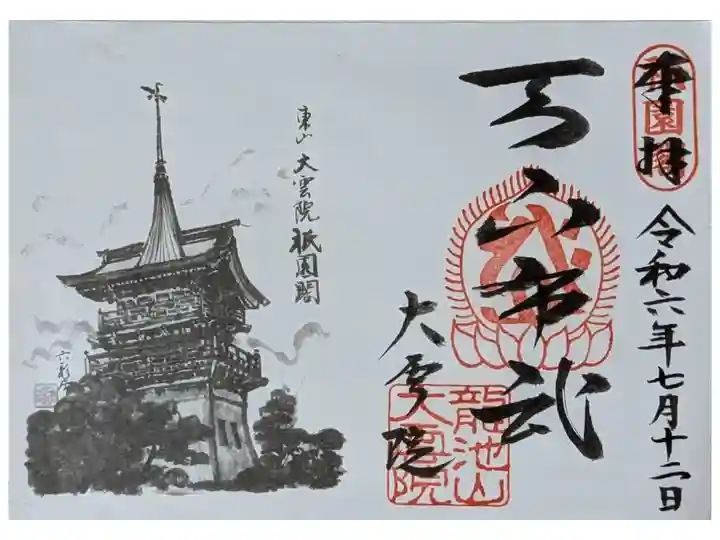 奉拝
園
令和六年七月十二日
天下布武
大雲院
龍池山
大雲院
東山 大雲院 祇園閣